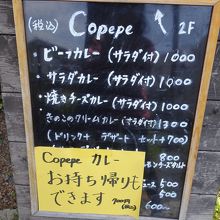 (税込) Copepe 2F
・ビーフカレー (サラダ付) 1000
・サラダカレー (サラダ付) 1000
・焼きチーズカレー (サラダ付) 1000
・きのこのクリームカレー (サラダ付) 1300
(ドリンク+デザート セット+700
Copepe カレー
お持ち帰りも
できます 700円(税込)
800
500
500
600